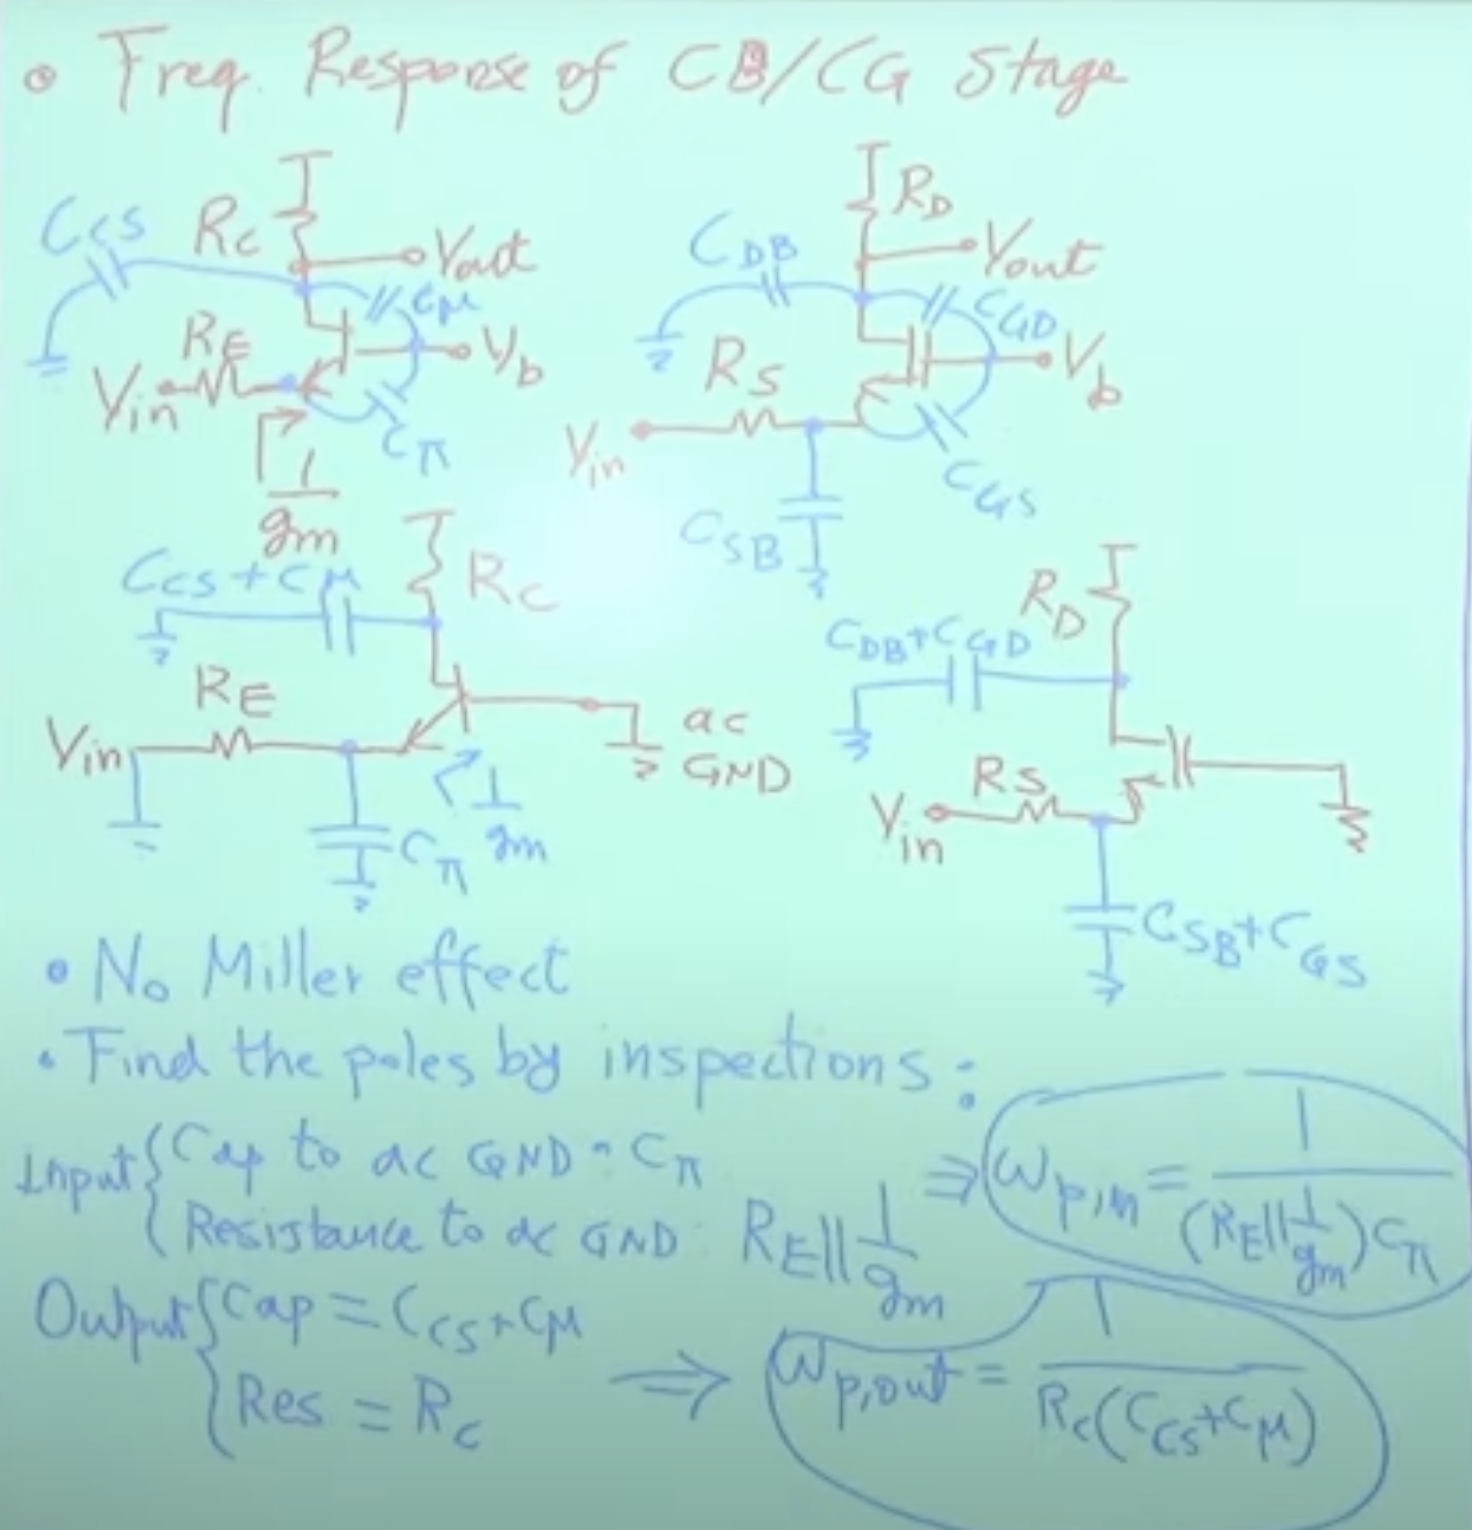 • Freq. Response of CB/CG Stage
CCS RC Vout Cμ
RE Vb
Vin Cπ
1/gm
RD
CDB Vout
CGD
RS Vb
Vin
CGS
CSB
CCS + Cμ RC
RE
Vin ac
GND
1/gm
Cπ
RD
CDB+CGD
RS
Vin
CSB+CGS
• No Miller effect
• Find the poles by inspections:
Input { Cap to ac GND = Cπ
Resistance to ac GND: RE||1/gm ⇒ ωp,in = 1/((RE||1/gm)Cπ)
Output { Cap = CCS+Cμ
Res = RC ⇒ ωp,out = 1/(RC(CCS+Cμ))